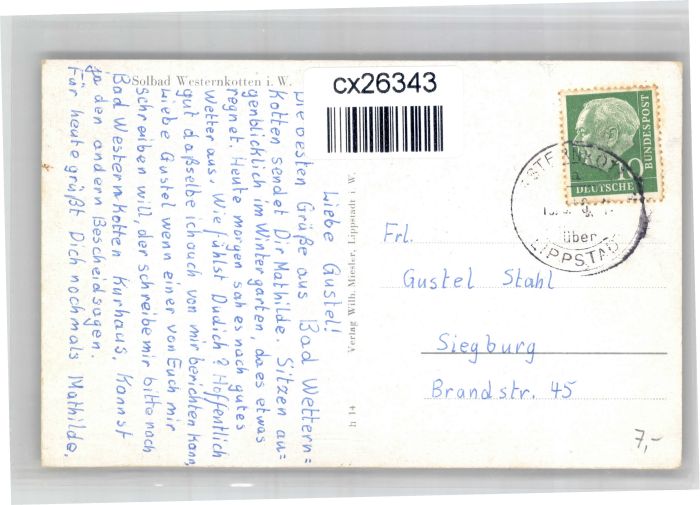 Solbad Westernkotten i. W.
cx26343
Liebe Gustel!
Die besten Grüße aus Bad Wettern=
Kotten sendet Dir Mathilde. Sitzen au=
genblicklich im Wintergarten, da es etwas
regnet. Heute morgen sah es nach gutes
Wetter aus. Wie fühlst Du dich? Hoffentlich
gut daßselbe ich auch von mir berichten kann,
Liebe Gustel wenn einer von Euch mir
schreiben will, der schreibe mir bitte nach
Bad Westernkotten Kurhaus. Kannst
ja den andern Bescheid sagen.
Für heute grüßt Dich nochmals Mathilde.
Verlag Wilh. Lippstadt i. W.
DEUTSCHE
BUNDESPOST
10
über
LIPPSTADT
Frl.
Gustel Stahl
Siegburg
Brandstr. 45
7,-